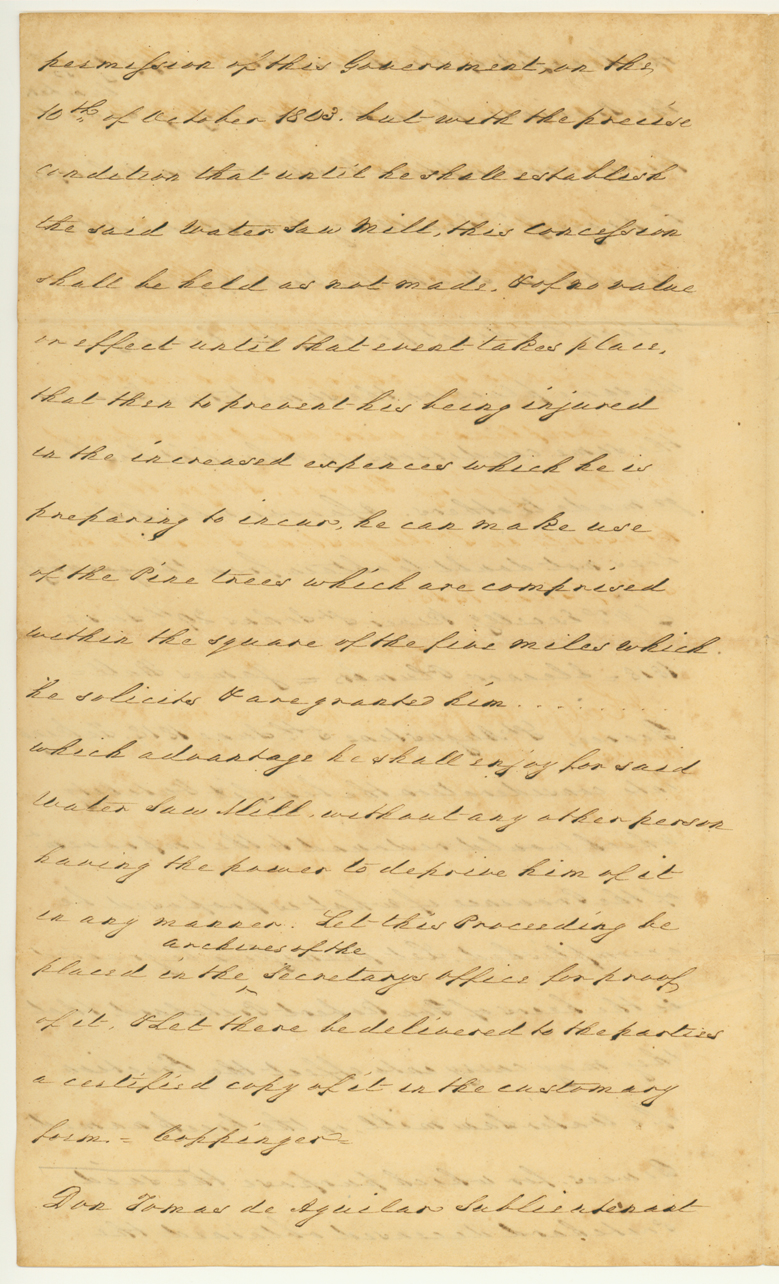 permission of this Government, on the
10th of October 1803. but with the precise
condition that until he shall establish
the said Water Saw Mill, this Concession
shall be held as not made, & of no value
or effect until that event takes place,
that then to prevent his being injured
in the increased expences which he is
preparing to incur, he can make use
of the Pine trees which are comprised
within the square of the five miles which
he solicits & are granted him . . . . . . .
which advantage he shall enjoy for said
Water Saw Mill, without any other person
having the power to deprive him of it
in any manner. Let this Proceeding be
archives of the
placed in the ^ Secretarys office for proof
of it, & Let there be delivered to the parties
a certified copy of it in the customary
form. = Coppinger =
Don Tomas de Aguilar Sublieutenant